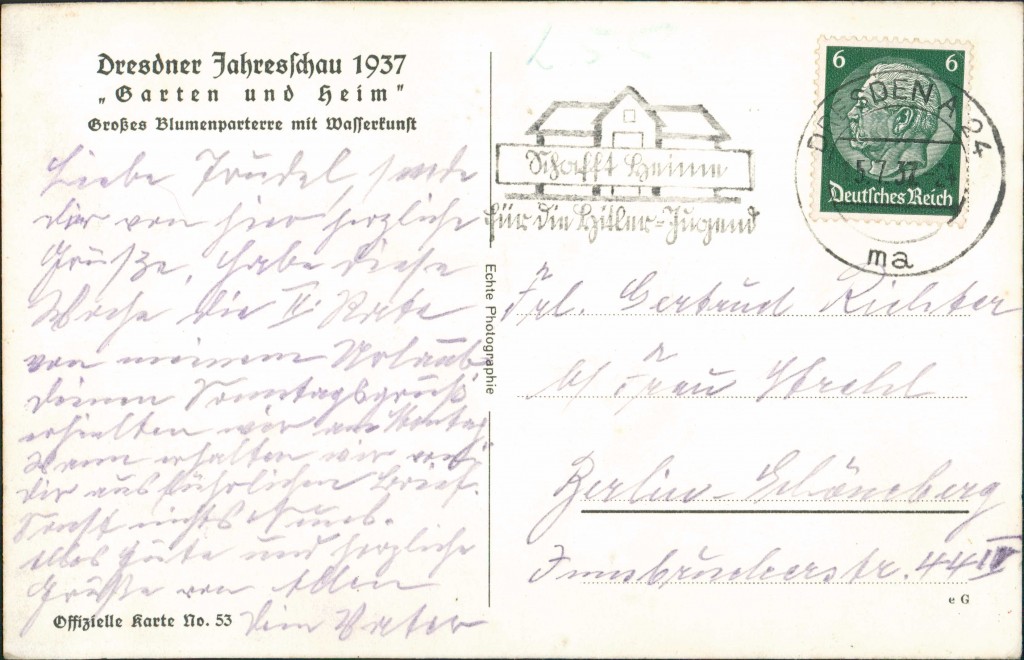 Dresdner Jahresschau 1937
„Garten und Heim"
Großes Blumenparterre mit Wasserkunst
Liebe Trudel, sende
dir von hier herzliche
Grüße, habe diese
Woche die II. Rate
von meinem Urlaub,
Deinen Sonntagsgruß
erhielten wir am Montag
Wann erhalten wir von
dir ausführlichen Brief.
Sonst nichts Neues.
Alles Gute und herzliche
Grüße von Allen
Dein Vater
Offizielle Karte No. 53
Echte Photographie
L 5
Schafft Heime
für die Hitler-Jugend
6 6
Deutsches Reich
DRESDEN A 24
5.7.37
ma
Frl. Gertrud Richter
b/ Frau
Berlin-Schöneberg
Innsbruckerstr. 44 IV
e G